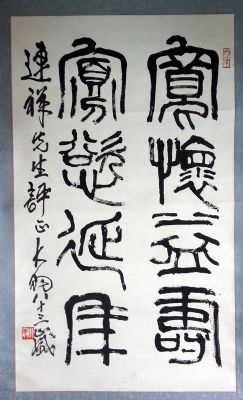 寬懷益壽
寡慾延年
連祥先生評正大八十三歲